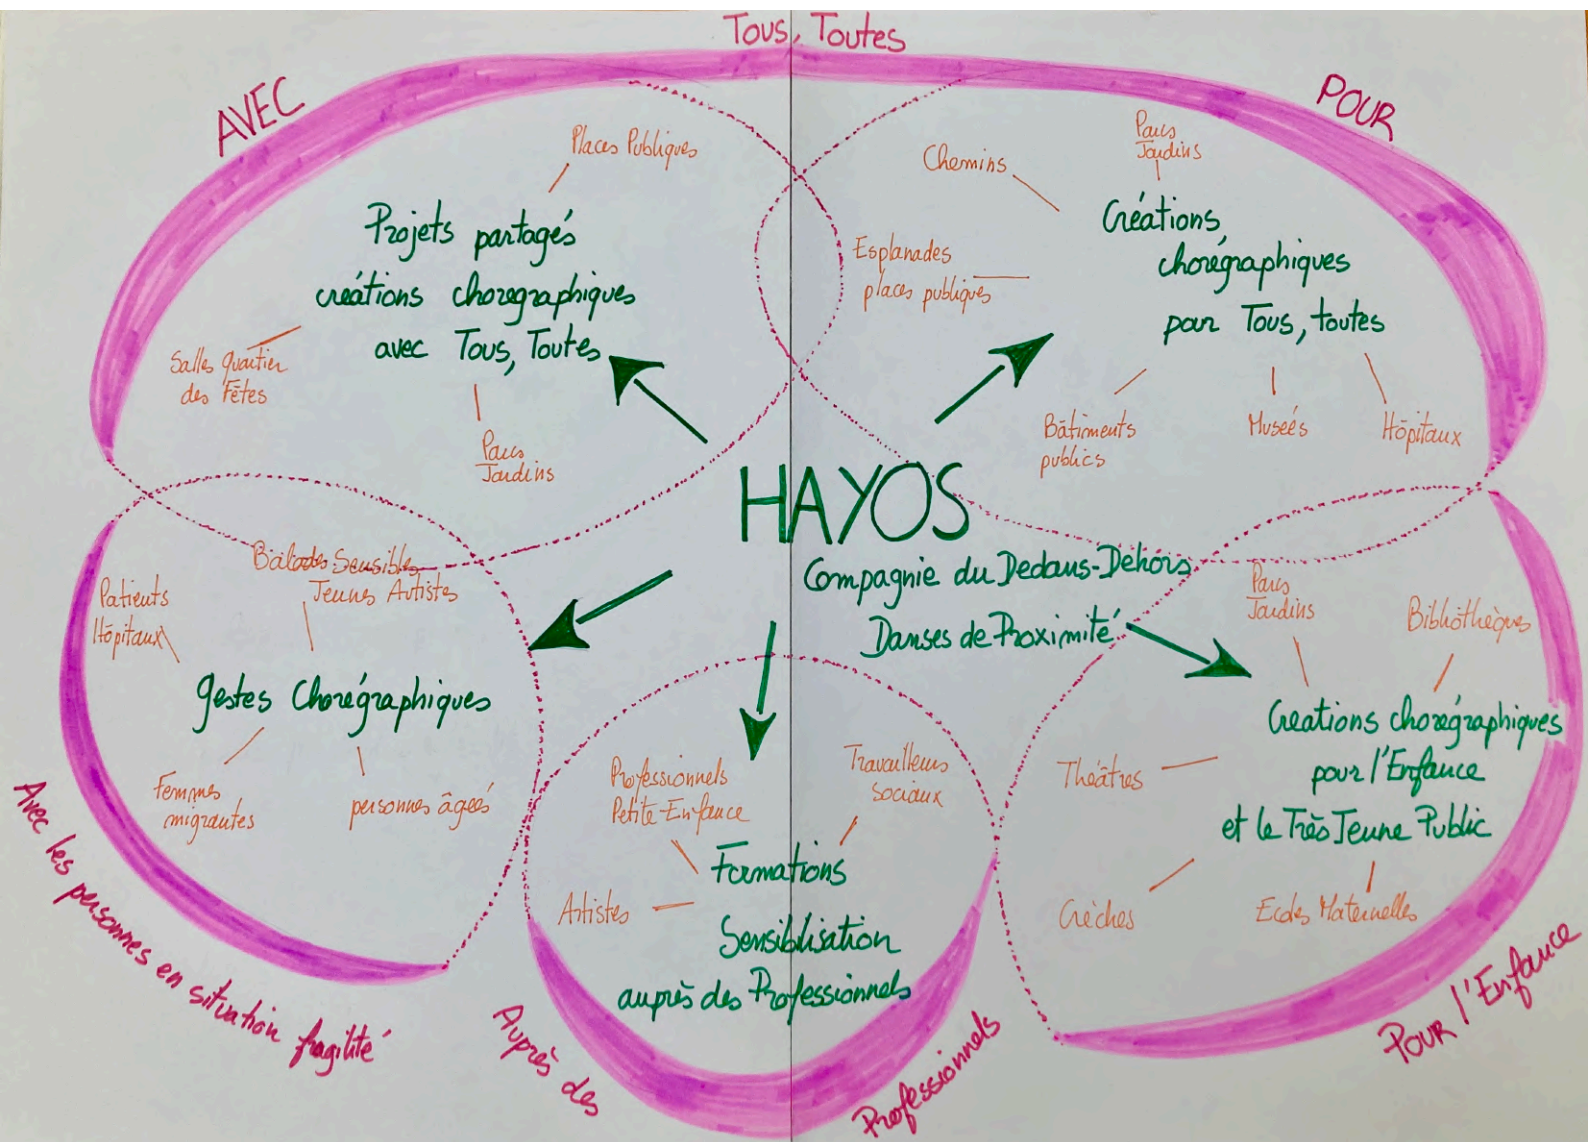 Tous, Toutes
AVEC
POUR
Places Publiques
Projets partagés
créations chorégraphiques
avec Tous, Toutes
Salles quartier
des Fêtes
Parcs
Jardins
Chemins
Parcs
Jardins
Créations
chorégraphiques
pour Tous, toutes
Esplanades
places publiques
Bâtiments
publics
Museés
Hôpitaux
HAYOS
Compagnie du Dedans-Dehors
Danses de Proximité
Balades Sensibles
Jeunes Artistes
Patients
Hôpitaux
gestes Chorégraphiques
Femmes
migrantes
personnes âgeés
Avec les personnes en situation fragilité
Professionnels
Petite-Enfance
Travailleurs
sociaux
Formations
Artistes
Sensiblisation
auprès des Professionnels
Auprès des
Professionnels
Parcs
Jardins
Bibliothèques
Créations chorégraphiques
pour l'Enfance
et le Très Jeune Public
Théâtres
Crèches
Ecoles Maternelles
POUR l'Enfance